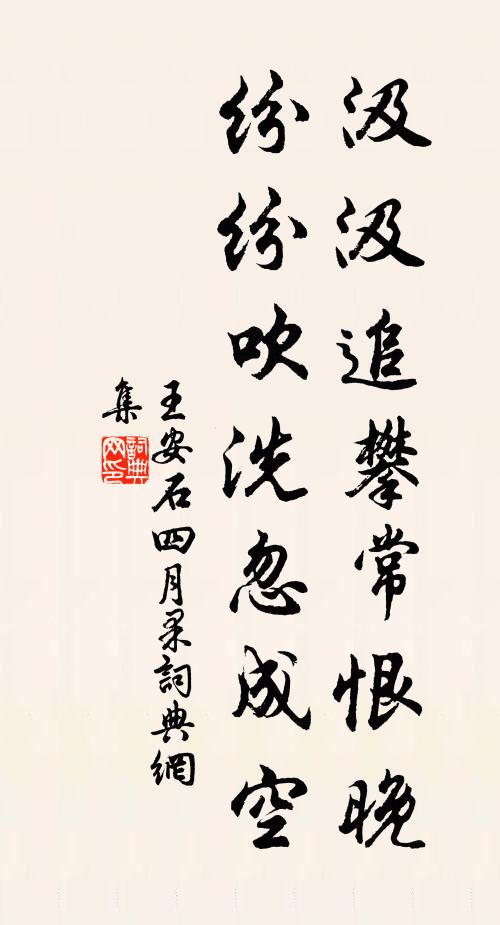 汲汲追攀常恨晚
纷纷吹洗忽成空
王安石四月果詞典網
集
詞典
网